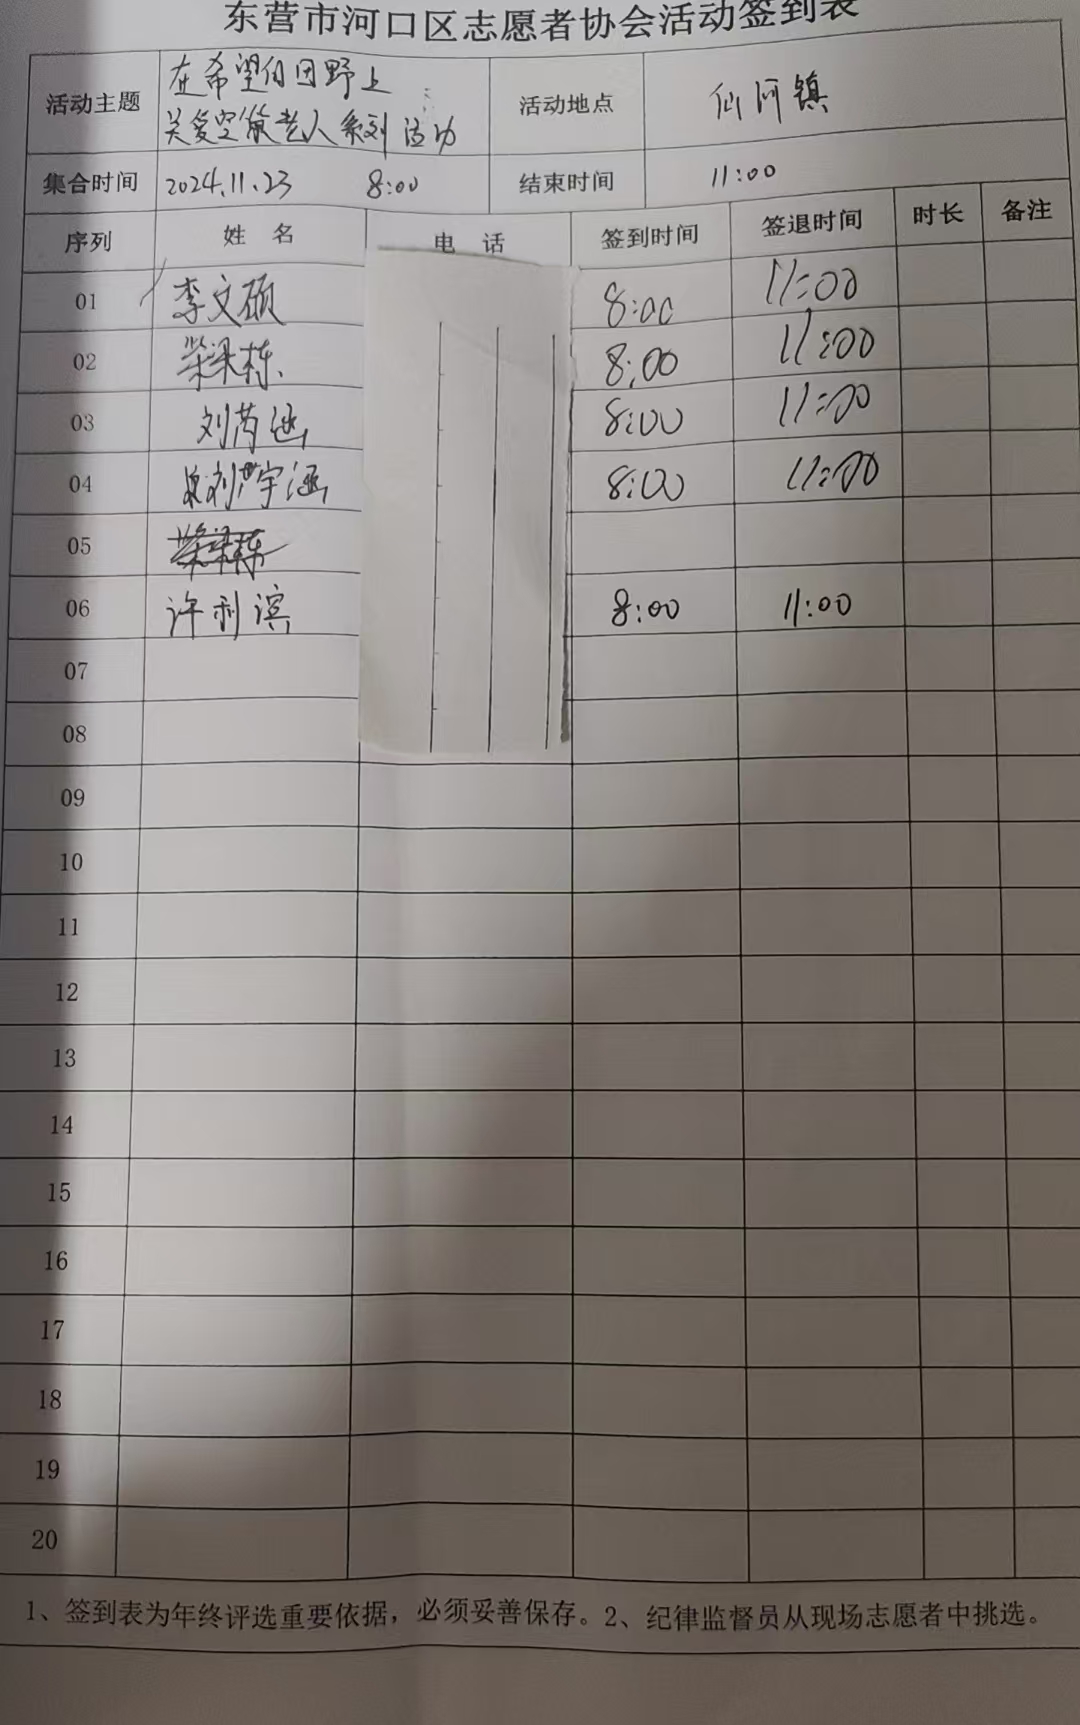 东营市河口区志愿者协会活动签到表
活动主题 在希望的田野上 关爱空巢老人系列活动 活动地点 仙河镇
集合时间 2024.11.23 8:00 结束时间 11:00
序列 姓名 电话 签到时间 签退时间 时长 备注
01 李文硕 8:00 11:00
02 柴梁栋 8:00 11:00
03 刘芮涵 8:00 11:00
04 刘宇涵 8:00 11:00
05
06 许利滨 8:00 11:00
07
08
09
10
11
12
13
14
15
16
17
18
19
20
1、签到表为年终评选重要依据，必须妥善保存。2、纪律监督员从现场志愿者中挑选。